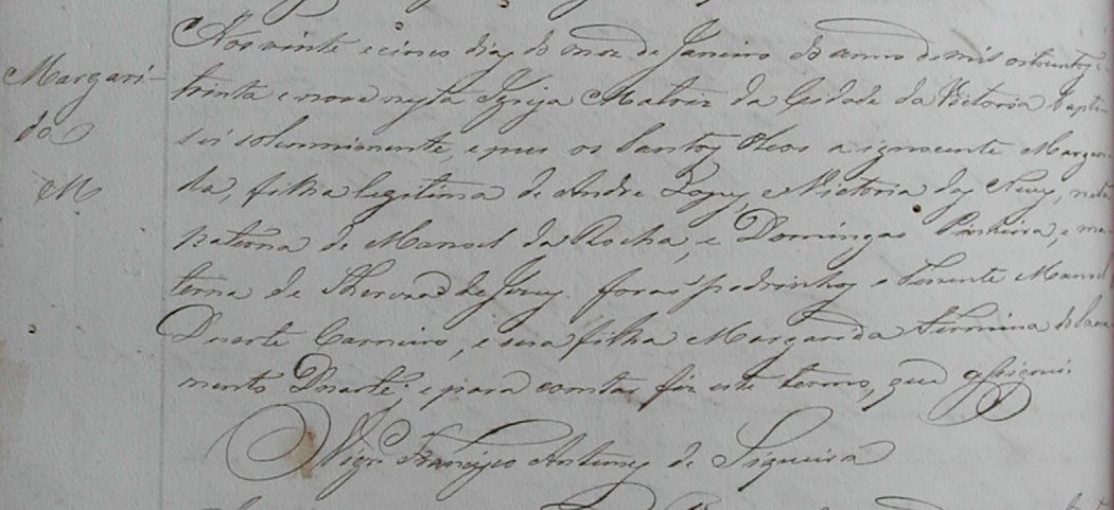 Margari-
da
M
Aos vinte e cinco dias do mez de Janeiro do anno de mil oitocentos e
trinta e nove nesta Igreja Matriz da Cidade da Victoria bapti-
sei solemnimente, e pus os Santos Oleos a ignocente Margari-
da, filha legitima de Andre Lopes, e Victoria das Neves, neta
paterna de Manoel da Rocha, e Domingas Pinheira, e ma-
terna de Thereza de Jesus. foraõ padrinhos o Tenente Manoel
Duarte Carneiro, e sua filha Margarida Fermina do Sacra-
mento Duarte; e para constar fiz este termo, que assignei.
Vigr.º Francisco Antunes de Siqueira